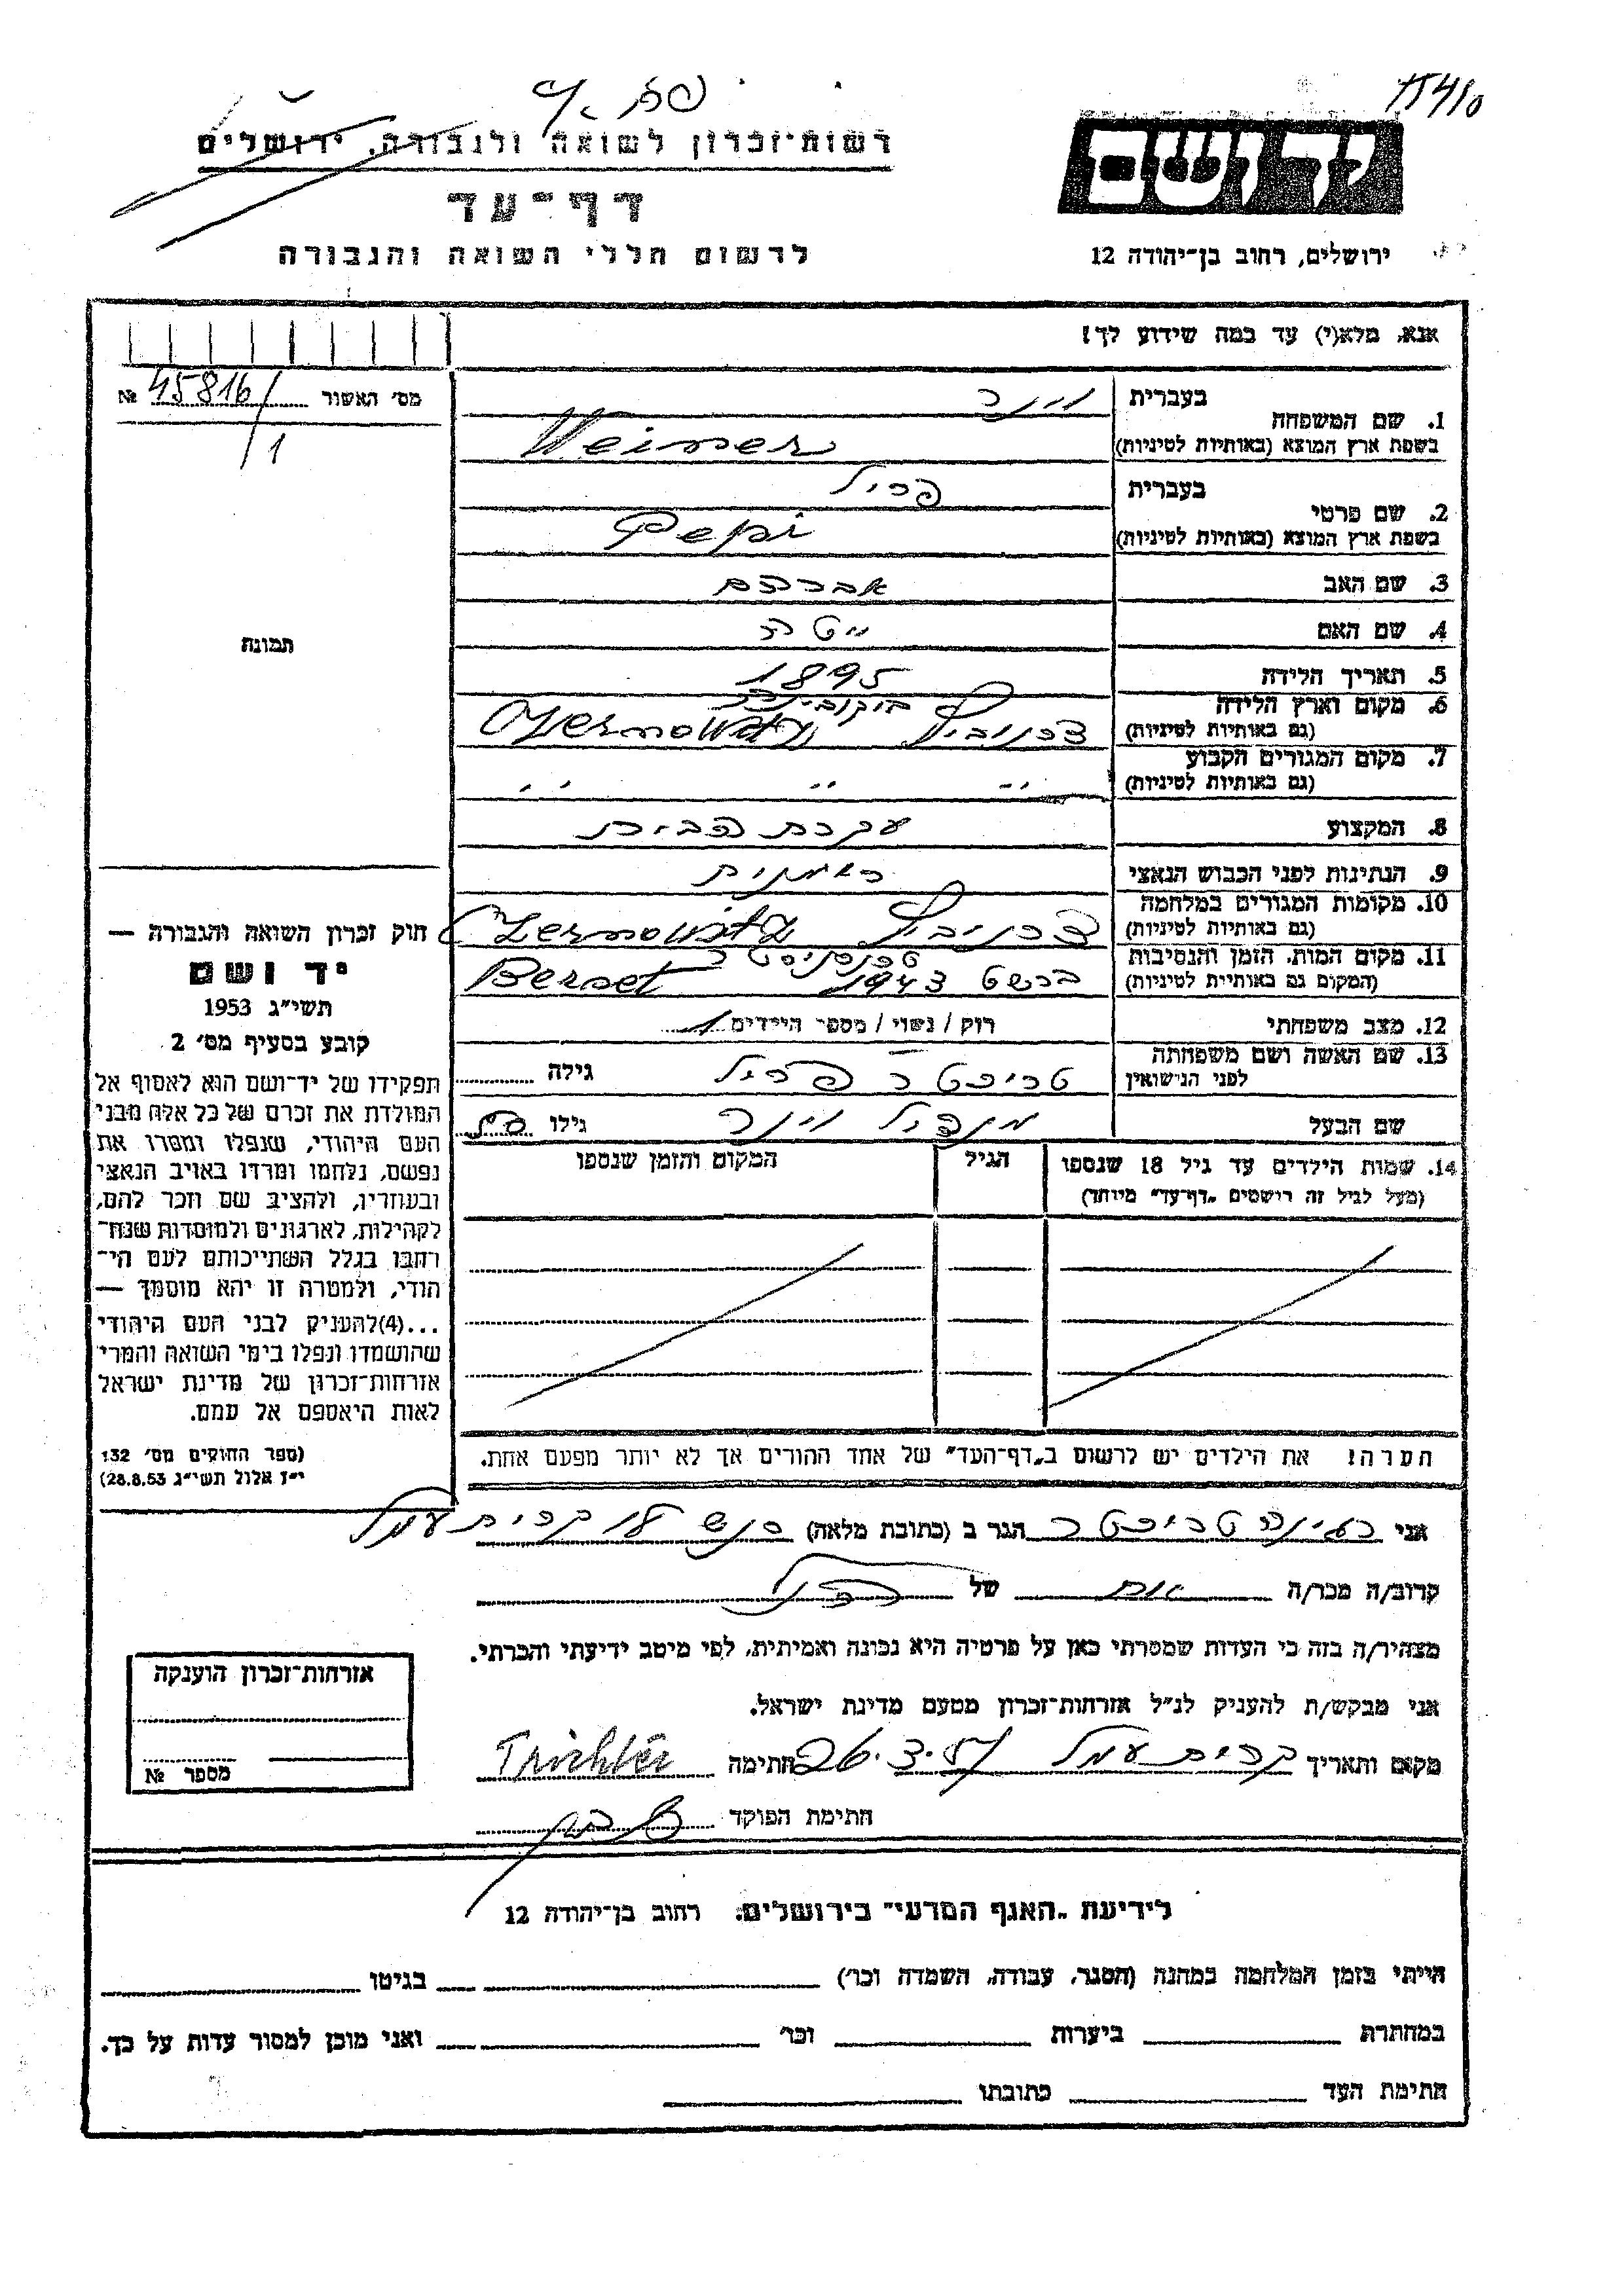 רשות־זכרון לשואה ולגבורה, ירושלים
דף־עד
לרשום חללי השואה והגבורה
יד ושם
ירושלים, רחוב בן־יהודה 12
אנא, מלא(י) עד כמה שידוע לך!
מס׳ האשור № 45816/1
תמונה
1. שם המשפחה
בעברית וינר
בשפת ארץ המוצא (באותיות לטיניות) Weiner
2. שם פרטי
בעברית פרל
בשפת ארץ המוצא (באותיות לטיניות) Pepi
3. שם האב אברהם
4. שם האם יטה
5. תאריך הלידה 1895
6. מקום וארץ הלידה (גם באותיות לטיניות) צרנוביץ בוקובינה Czernowitz
7. מקום המגורים הקבוע (גם באותיות לטיניות) " " "
8. המקצוע עקרת הבית
9. הנתינות לפני הכבוש הנאצי רומנית
10. מקומות המגורים במלחמה (גם באותיות לטיניות) צרנוביץ Czernowitz
11. מקום המות, הזמן והנסיבות (המקום גם באותיות לטיניות) ברשט 1943 Berset
12. מצב משפחתי רוק / נשוי / מספר הילדים 1
13. שם האשה ושם משפחתה לפני הנישואין טריכטר פרל גילה
שם הבעל מנדל וינר גילו
14. שמות הילדים עד גיל 18 שנספו
(מעל לגיל זה רושמים „דף־עד" מיוחד)
הגיל
המקום והזמן שנספו
הערה! את הילדים יש לרשום ב„דף־העד" של אחד ההורים אך לא יותר מפעם אחת.
חוק זכרון השואה והגבורה —
יד ושם
תשי״ג 1953
קובע בסעיף מס׳ 2
תפקידו של יד־ושם הוא לאסוף אל
המולדת את זכרם של כל אלה מבני
העם היהודי, שנפלו ומסרו את
נפשם, נלחמו ומרדו באויב הנאצי
ובעוזריו, ולהציב שם וזכר להם,
לקהילות, לארגונים ולמוסדות שנח־
רבו בגלל השתייכותם לעם הי־
הודי, ולמטרה זו יהא מוסמך —
...(4)להעניק לבני העם היהודי
שהושמדו ונפלו בימי השואה והמרי
אזרחות־זכרון של מדינת ישראל
לאות היאספם אל עמם.
(ספר החוקים מס׳ 132
י״ז אלול תשי״ג 28.8.53)
אני טריכטר הגר ב (כתובת מלאה) קרית עמל
קרוב/ה מכר/ה של
מצהיר/ה בזה כי העדות שמסרתי כאן על פרטיה היא נכונה ואמיתית, לפי מיטב ידיעתי והכרתי.
אני מבקש/ת להעניק לנ״ל אזרחות־זכרון מטעם מדינת ישראל.
מקום ותאריך קרית עמל 26.3.57 חתימה Trichter
חתימת הפוקד
אזרחות־זכרון הוענקה
מספר №
לידיעת „האגף המדעי" בירושלים, רחוב בן־יהודה 12
הייתי בזמן המלחמה במחנה (הסגר, עבודה, השמדה וכו׳) בגיטו
במחתרת ביערות וכו׳ ואני מוכן למסור עדות על כך.
חתימת העד כתובתו